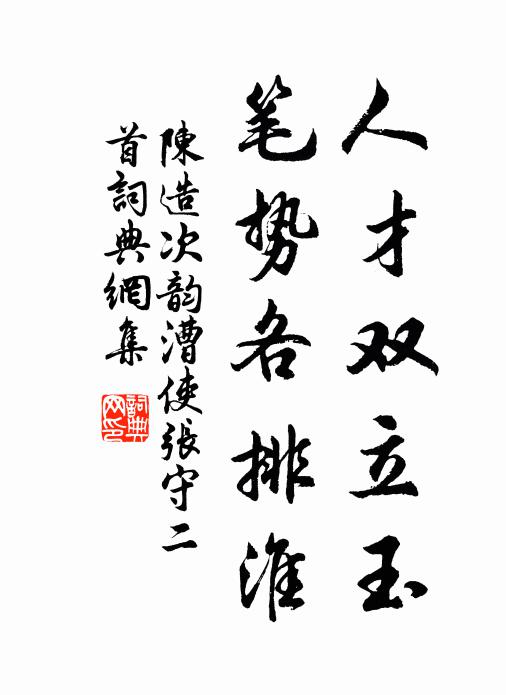 人才双立玉
笔势各排淮
陳造次韵漕使張守二
首詞典網集
詞典
网印